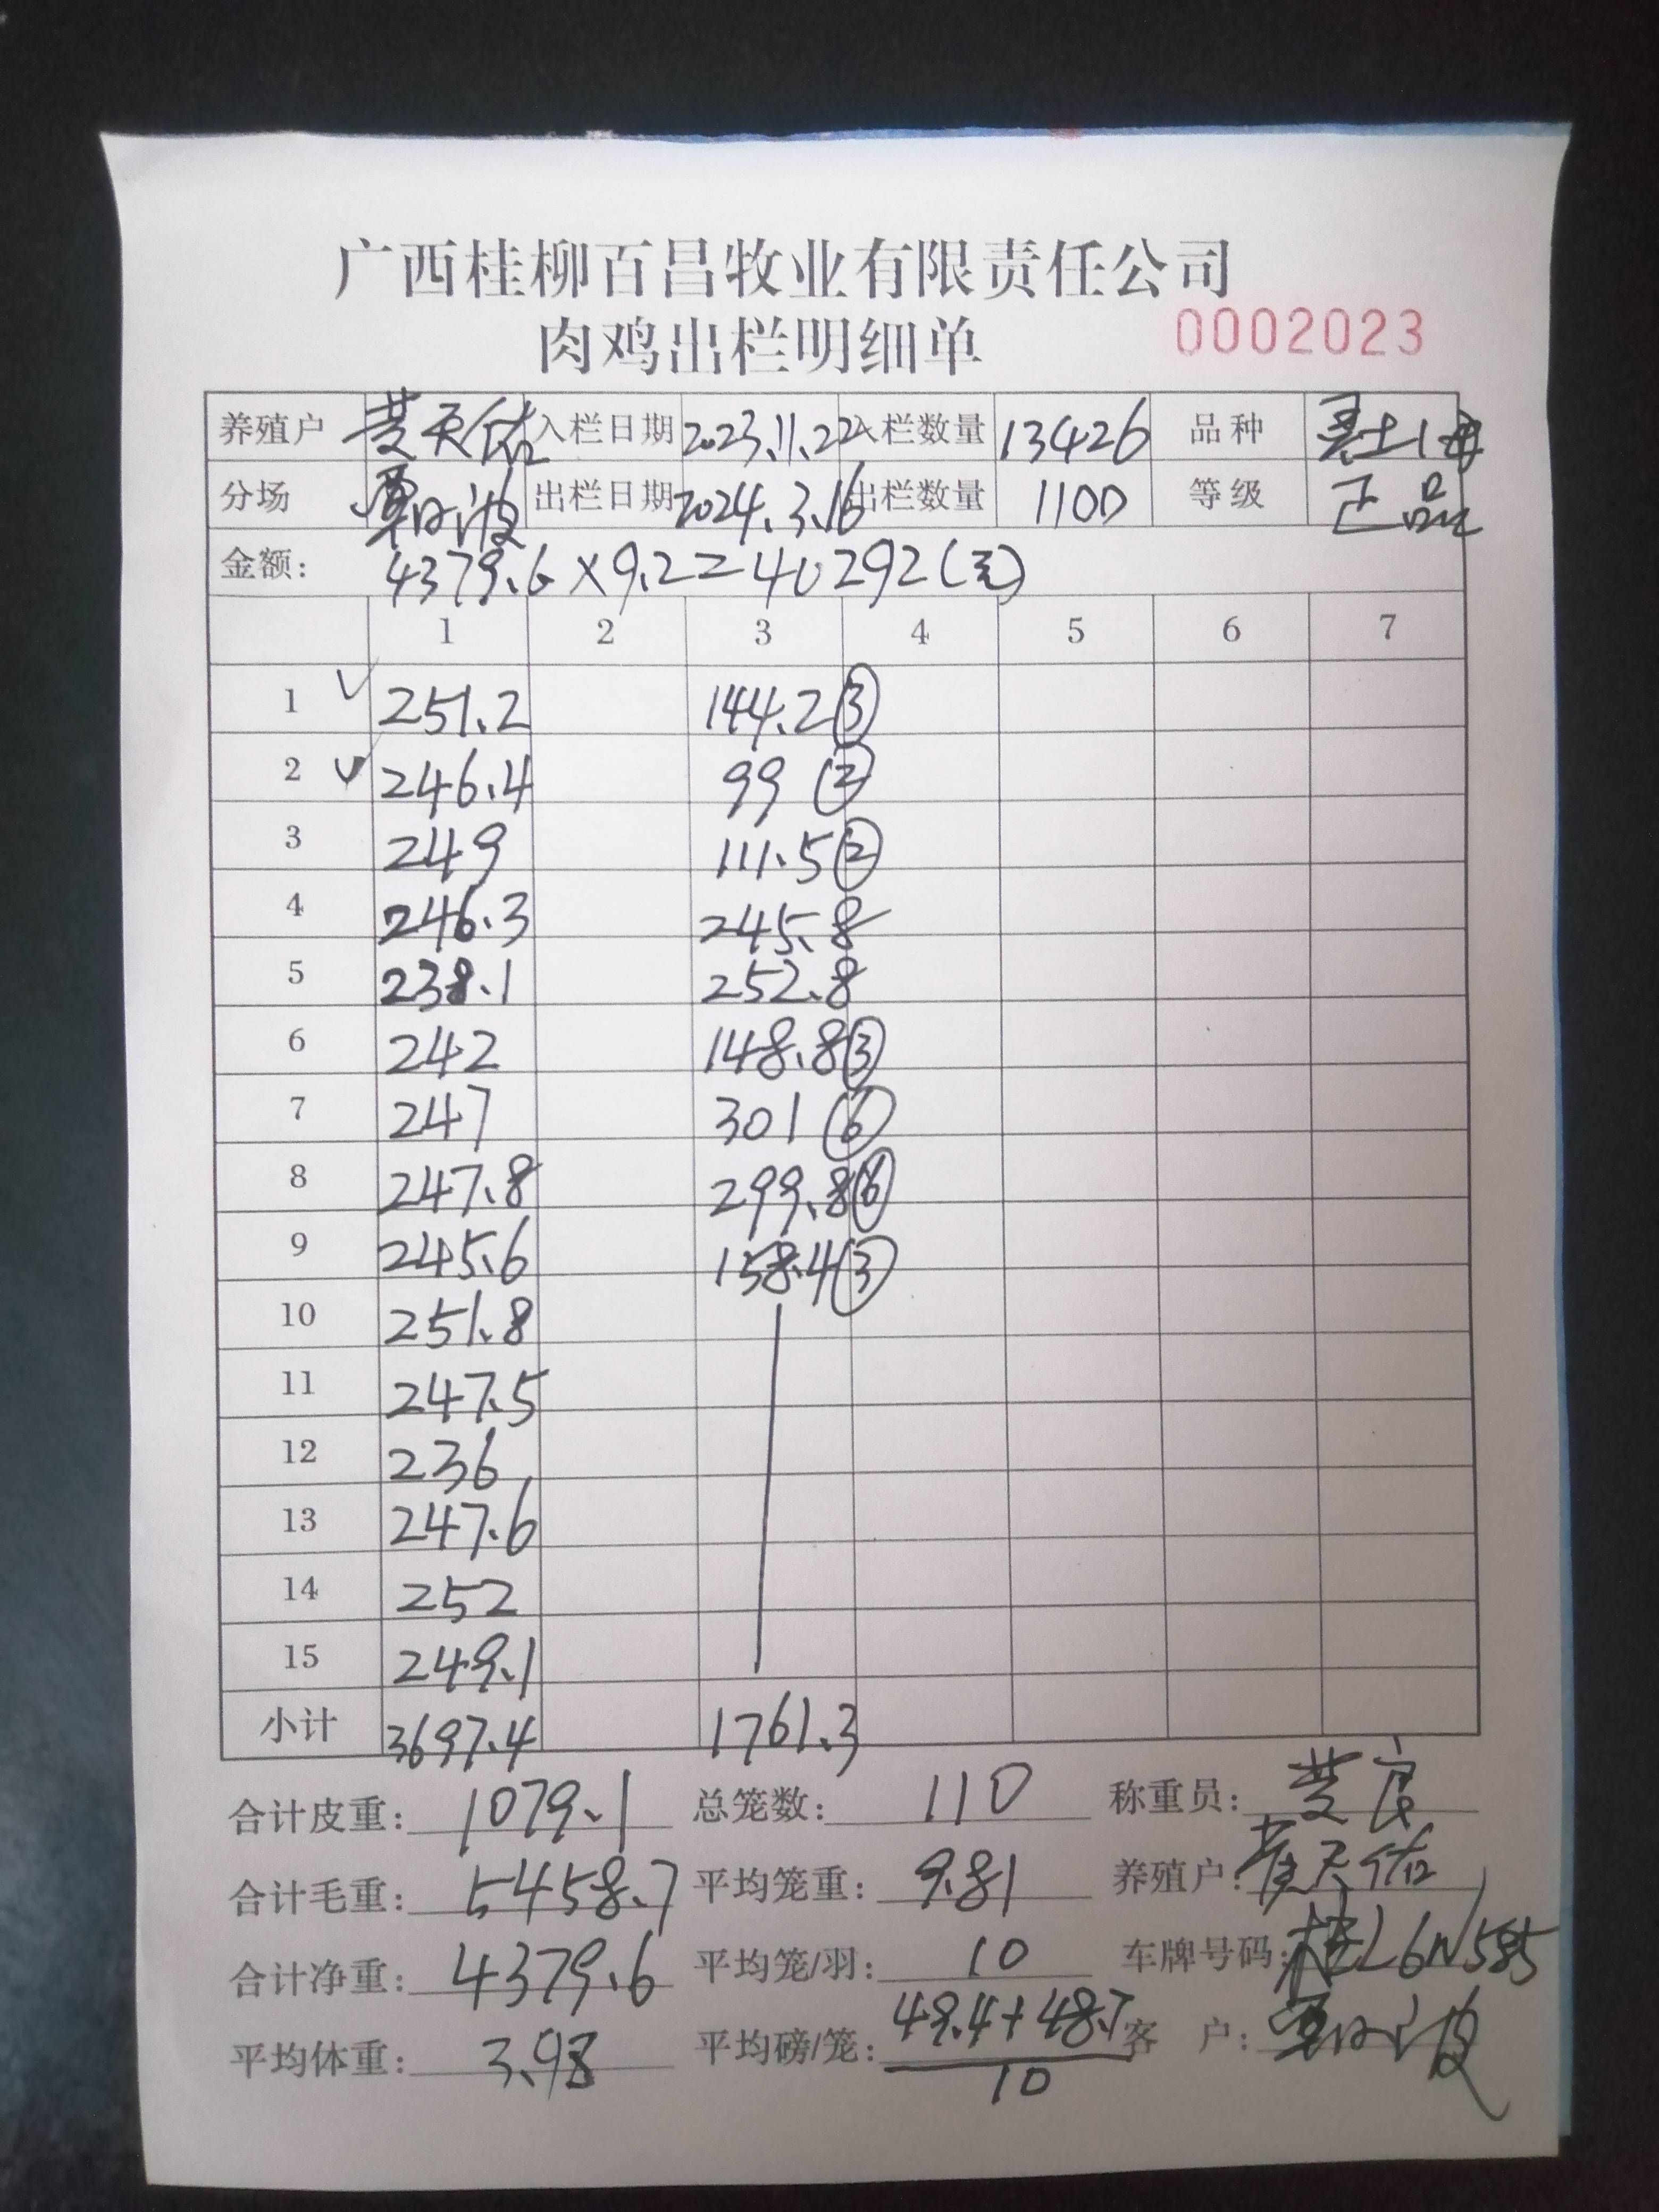 广西桂柳百昌牧业有限责任公司
肉鸡出栏明细单 0002023
养殖户 黄天佑 入栏日期 2023.11.22 入栏数量 13426 品种 土1母
分场 覃 波 出栏日期 2024.3.16 出栏数量 1100 等级 正品
金额: 4379.6×9.2=40292(元)
1 2 3 4 5 6 7
1 √ 251.2 144.2 ③
2 √ 246.4 99 ②
3 249 111.5 ②
4 246.3 245.8
5 238.1 252.8
6 242 148.8 ③
7 247 301 ⑥
8 247.8 299.8 ⑥
9 245.6 158.4 ③
10 251.8
11 247.5
12 236
13 247.6
14 252
15 249.1
小计 3697.4 1761.3
合计皮重: 1079.1 总笼数: 110 称重员: 黄
合计毛重: 5458.7 平均笼重: 9.81 养殖户: 黄天佑
合计净重: 4379.6 平均笼/羽: 10 车牌号码: 桂L6N585
平均体重: 3.98 平均磅/笼: 49.4+48.7 客 户: 覃 波
10